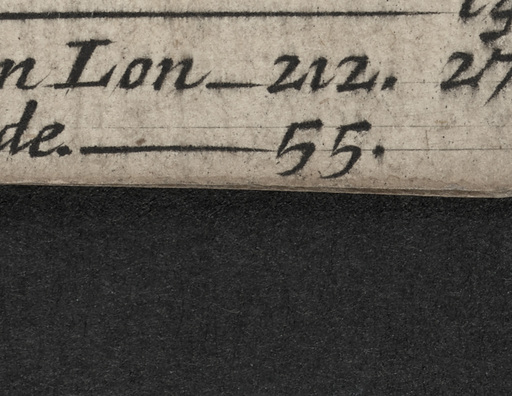 n Lon 212. 27
de. 55.